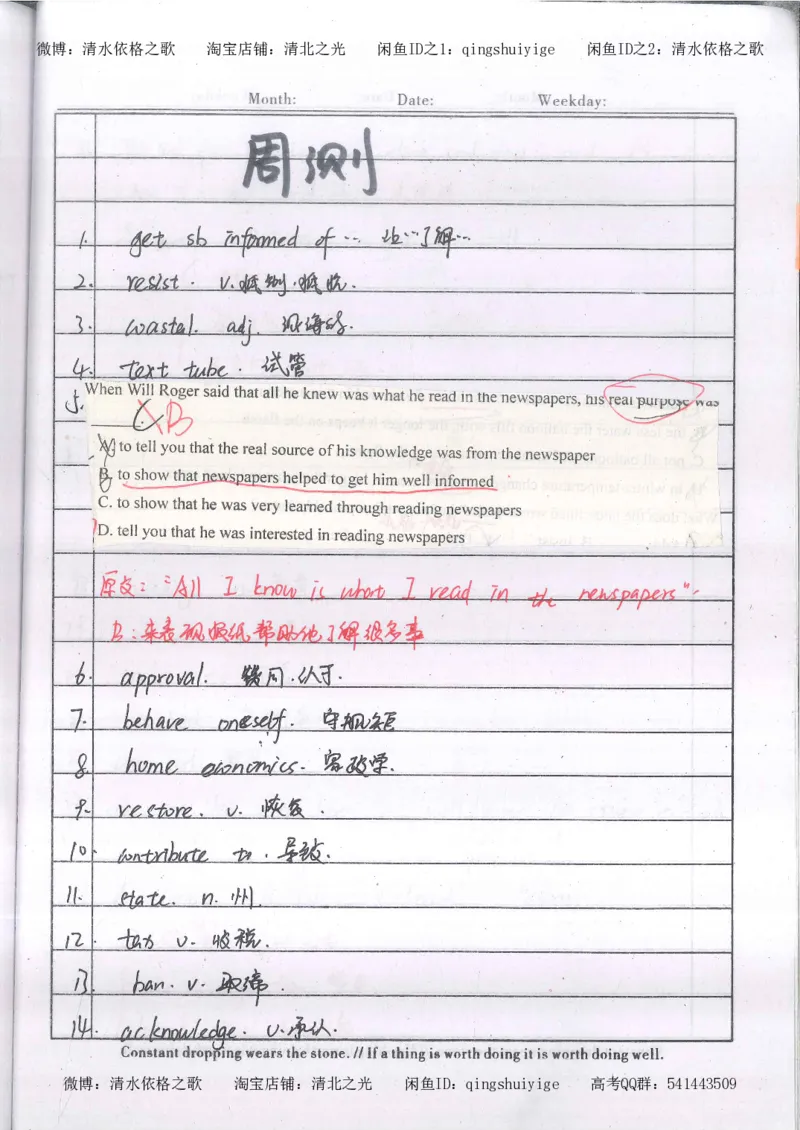 微博：清水依格之歌 淘宝店铺：清北之光 闲鱼ID之1：qingshuiyige 闲鱼ID之2：清水依格之歌
Month: Date: Weekday:
周测
1. get sb informed of … 让…了解…
2. resist. v. 抵制.抵抗.
3. coastal. adj. 沿海的.
4. text tube. 试管
5. When Will Roger said that all he knew was what he read in the newspapers, his real purpose was
C B
A. to tell you that the real source of his knowledge was from the newspaper
B. to show that newspapers helped to get him well informed
C. to show that he was very learned through reading newspapers
D. tell you that he was interested in reading newspapers
原文："All I know is what I read in the newspapers".
B：来表现报纸帮助他了解很多事
6. approval. 赞同.认可.
7. behave oneself. 守规矩
8. home economics. 家政学.
9. restore. v. 恢复.
10. contribute to. 导致.
11. state. n. 州.
12. tax v. 收税.
13. ban. v. 取缔.
14. acknowledge. v.承认.
Constant dropping wears the stone. // If a thing is worth doing it is worth doing well.
微博：清水依格之歌 淘宝店铺：清北之光 闲鱼ID：qingshuiyige 高考QQ群：541443509